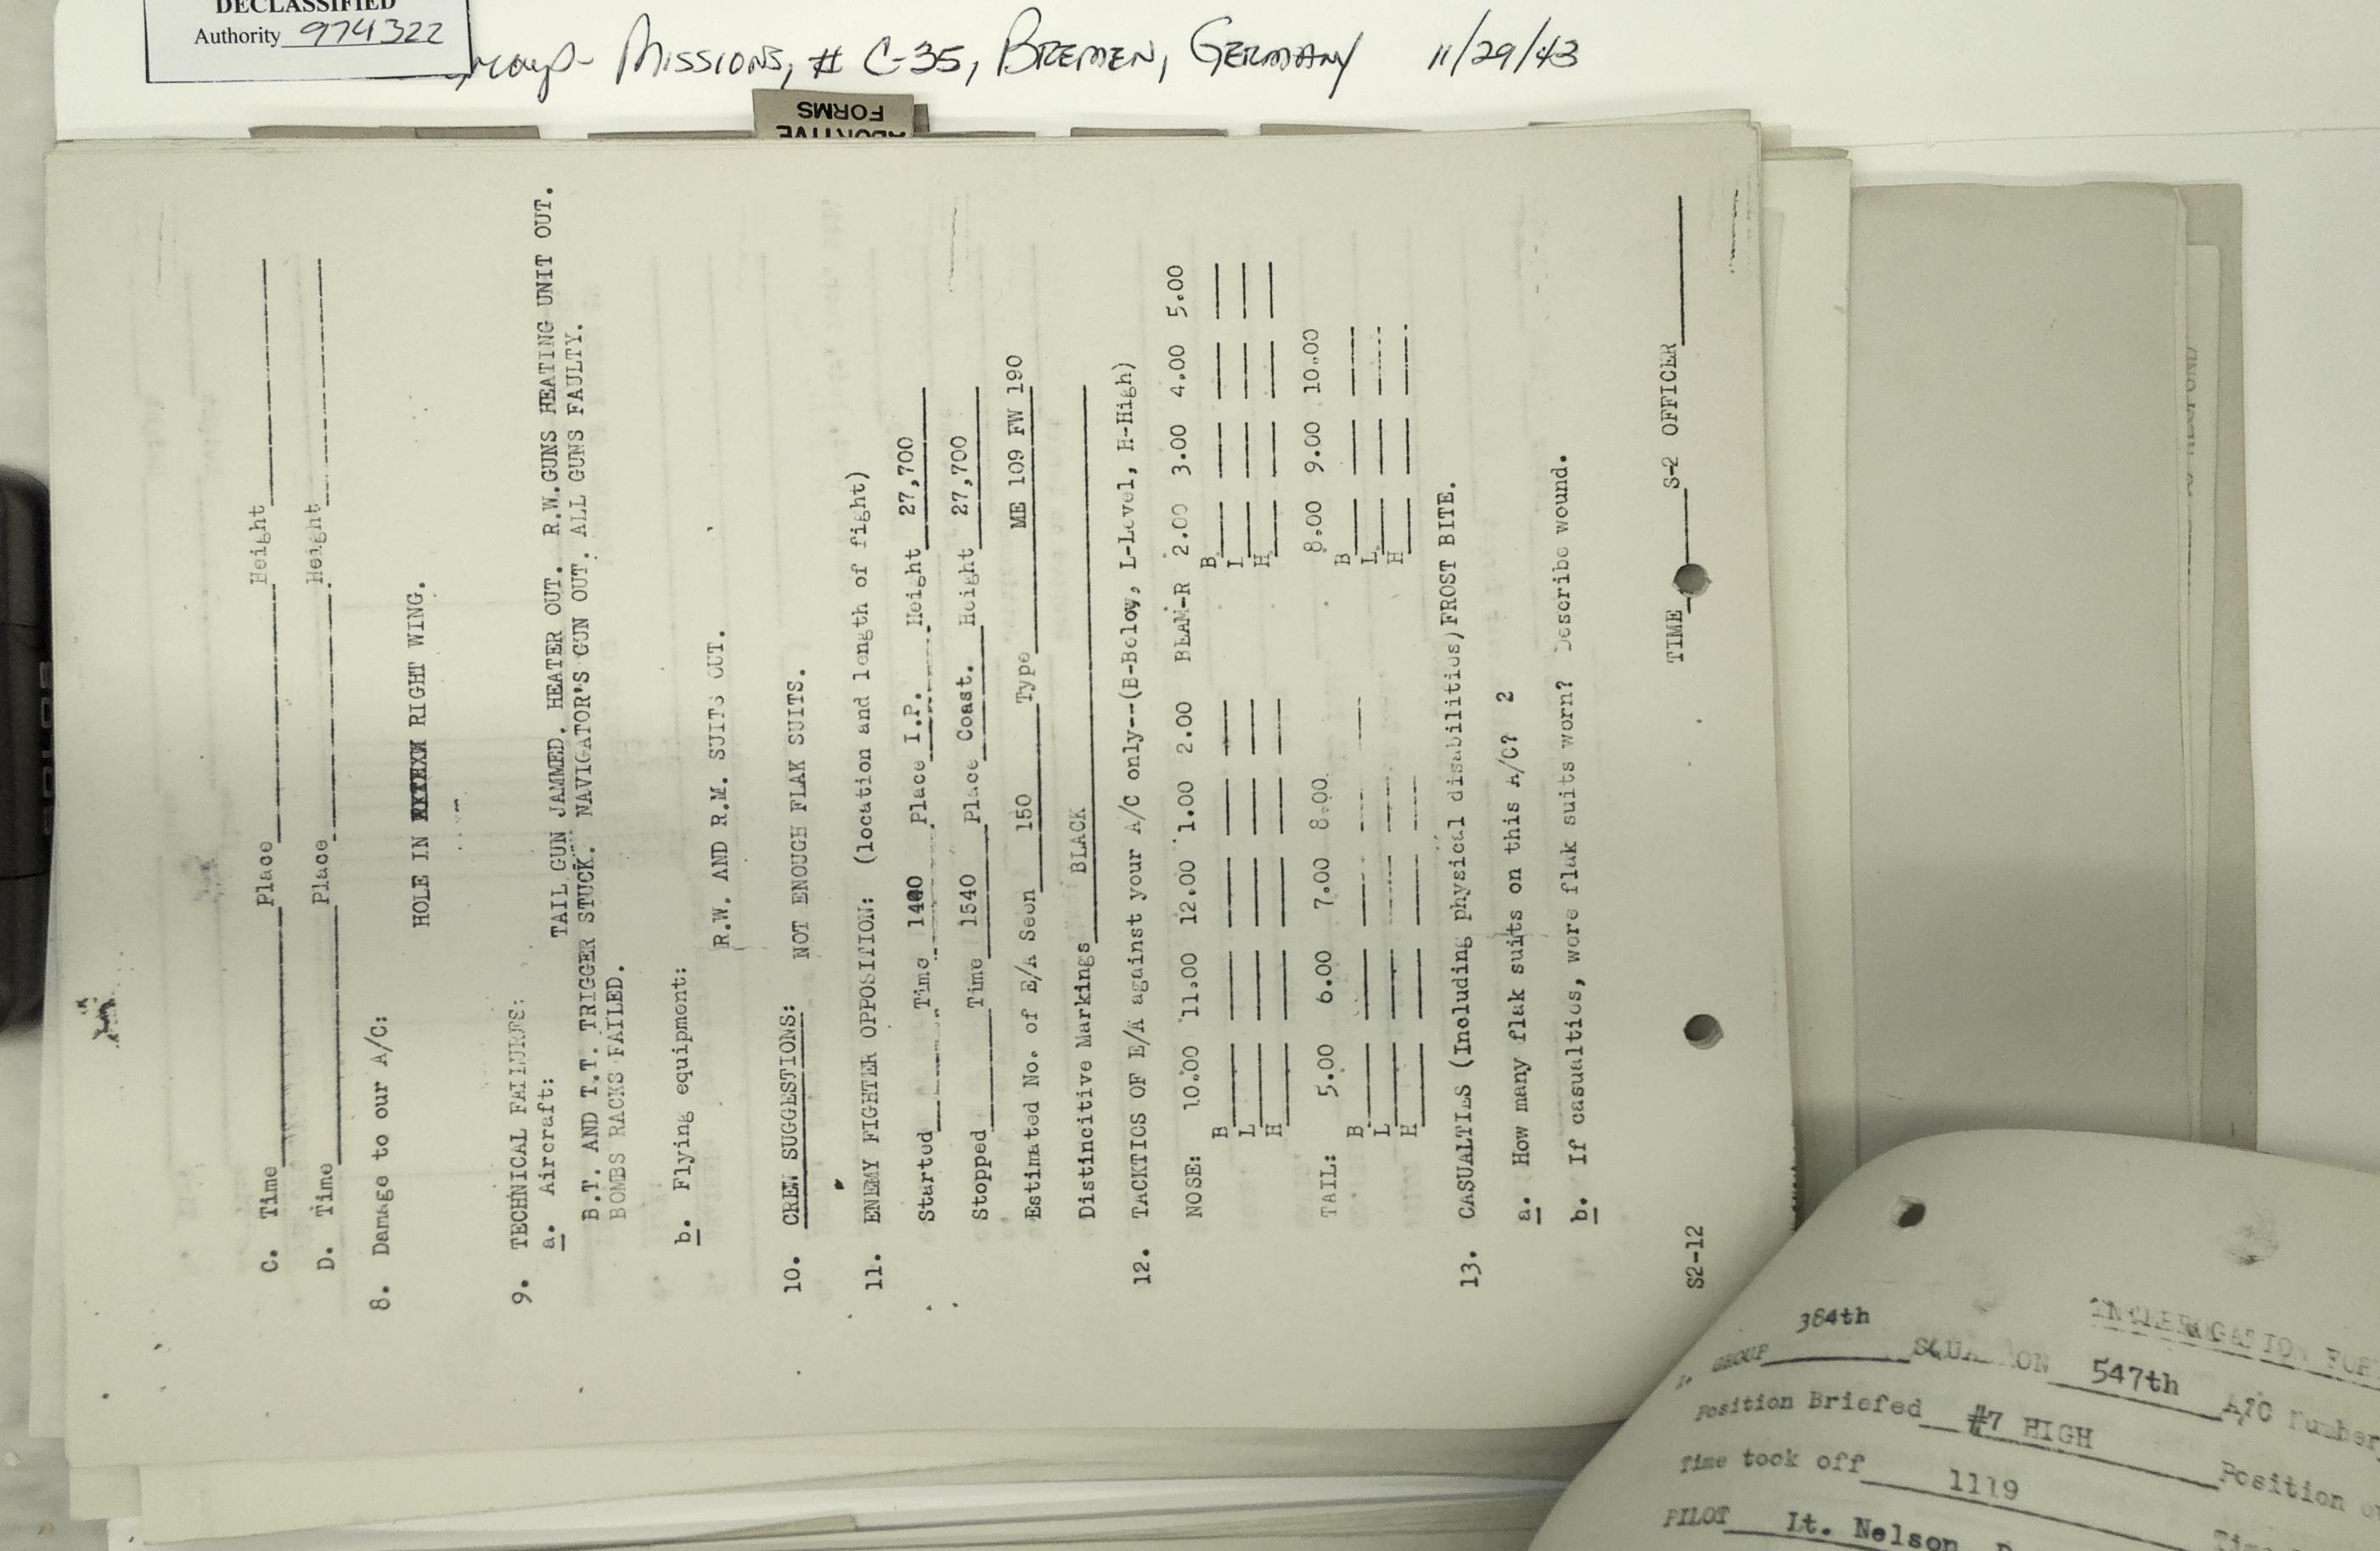 DECLASSIFIED
Authority 974322
Missions, # C-35, BREMEN, GERMANY 11/29/43
ABORTIVE
FORMS
C. Time Place Height
D. Time Place Height
8. Damage to our A/C:
HOLE IN RIGHT WING.
9. TECHNICAL FAILURES:
a. Aircraft: TAIL GUN JAMMED. HEATER OUT. R.W.GUNS HEATING UNIT OUT.
B.T. AND T.T. TRIGGER STUCK. NAVIGATOR'S GUN OUT. ALL GUNS FAULTY.
BOMBS RACKS FAILED.
b. Flying equipment:
R.W. AND R.M. SUITS OUT.
10. CREW SUGGESTIONS: NOT ENOUGH FLAK SUITS.
11. ENEMY FIGHTER OPPOSITION: (location and length of fight)
Started Time Place I.P. Height 27,700
Stopped Time 1540 Place Coast. Height 27,700
Estimated No. of E/A Seen 150 Type ME 109 FW 190
Distincitive Markings BLACK
12. TACKTICS OF E/A against your A/C only--(B-Below, L-Level, H-High)
NOSE: 10.00 11.00 12.00 1.00 2.00 BEAM-R 2.00 3.00 4.00 5.00
B B
L L
H H
TAIL: 5.00 6.00 7.00 8.00 8.00 9.00 10.00
B B
L L
H H
13. CASUALTIES (Including physical disabilities) FROST BITE.
a. How many flak suits on this A/C? 2
b. If casualties, were flak suits worn? Describe wound.
TIME S-2 OFFICER
S2-12
INTERROGATION FOR
GROUP 384th SQUADRON 547th A/C Number
Position Briefed #7 HIGH Position
Time took off 1119
PILOT Lt. Nelson